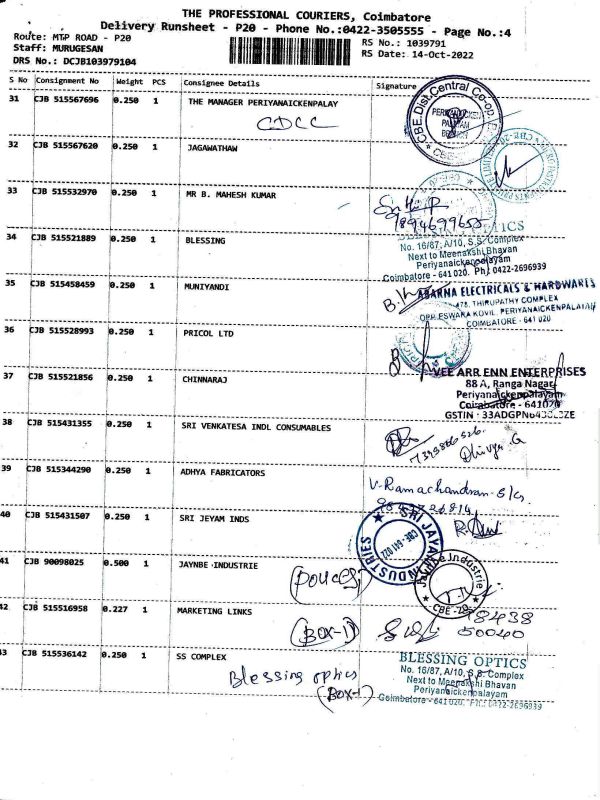 THE PROFESSIONAL COURIERS, Coimbatore
Delivery Runsheet - P20 - Phone No.:0422-3505555 - Page No.:4
Route: MTP ROAD - P20
RS No.: 1039791
Staff: MURUGESAN
RS Date: 14-Oct-2022
DRS No.: DCJB103979104
S No Consignment No Weight PCS Consignee Details Signature
31 CJB 515567696 0.250 1 THE MANAGER PERIYANAICKENPALAY
CDCC
32 CJB 515567620 0.250 1 JAGAWATHAW
33 CJB 515532970 0.250 1 MR B. MAHESH KUMAR
34 CJB 515521889 0.250 1 BLESSING
OPTICS
No. 16/87, A/10, S.S. Complex
Next to Meenakshi Bhavan
Periyanaickenpalayam
Coimbatore - 641 020. Ph: 0422-2696939
35 CJB 515458459 0.250 1 MUNIYANDI
ABARNA ELECTRICALS & HARDWARES
478, THIRUPATHY COMPLEX
OPP. ESWARA KOVIL, PERIYANAICKENPALAYAM
COIMBATORE - 641 020
36 CJB 515528993 0.250 1 PRICOL LTD
37 CJB 515521856 0.250 1 CHINNARAJ
VEE ARR ENN ENTERPRISES
88 A, Ranga Nagar,
Periyanaickenpalayam
Coimbatore - 641020
38 CJB 515431355 0.250 1 SRI VENKATESA INDL CONSUMABLES
Dhivya G
39 CJB 515344290 0.250 1 ADHYA FABRICATORS
V. Ramachandran
40 CJB 515431507 0.250 1 SRI JEYAM INDS
SRI JAYAM INDUSTRIES
CBE - 641 022
41 CJB 90098025 0.500 1 JAYNBE INDUSTRIE
(Pouces)
Jaynbe Industrie
CBE - 20
42 CJB 515516958 0.227 1 MARKETING LINKS
(BOX-1)
98438
50040
43 CJB 515536142 0.250 1 SS COMPLEX
Blessing optics
(Box-1)
BLESSING OPTICS
No. 16/87, A/10, S.S. Complex
Next to Meenakshi Bhavan
Periyanaickenpalayam
Coimbatore - 641 020. Ph.: 0422-2696939